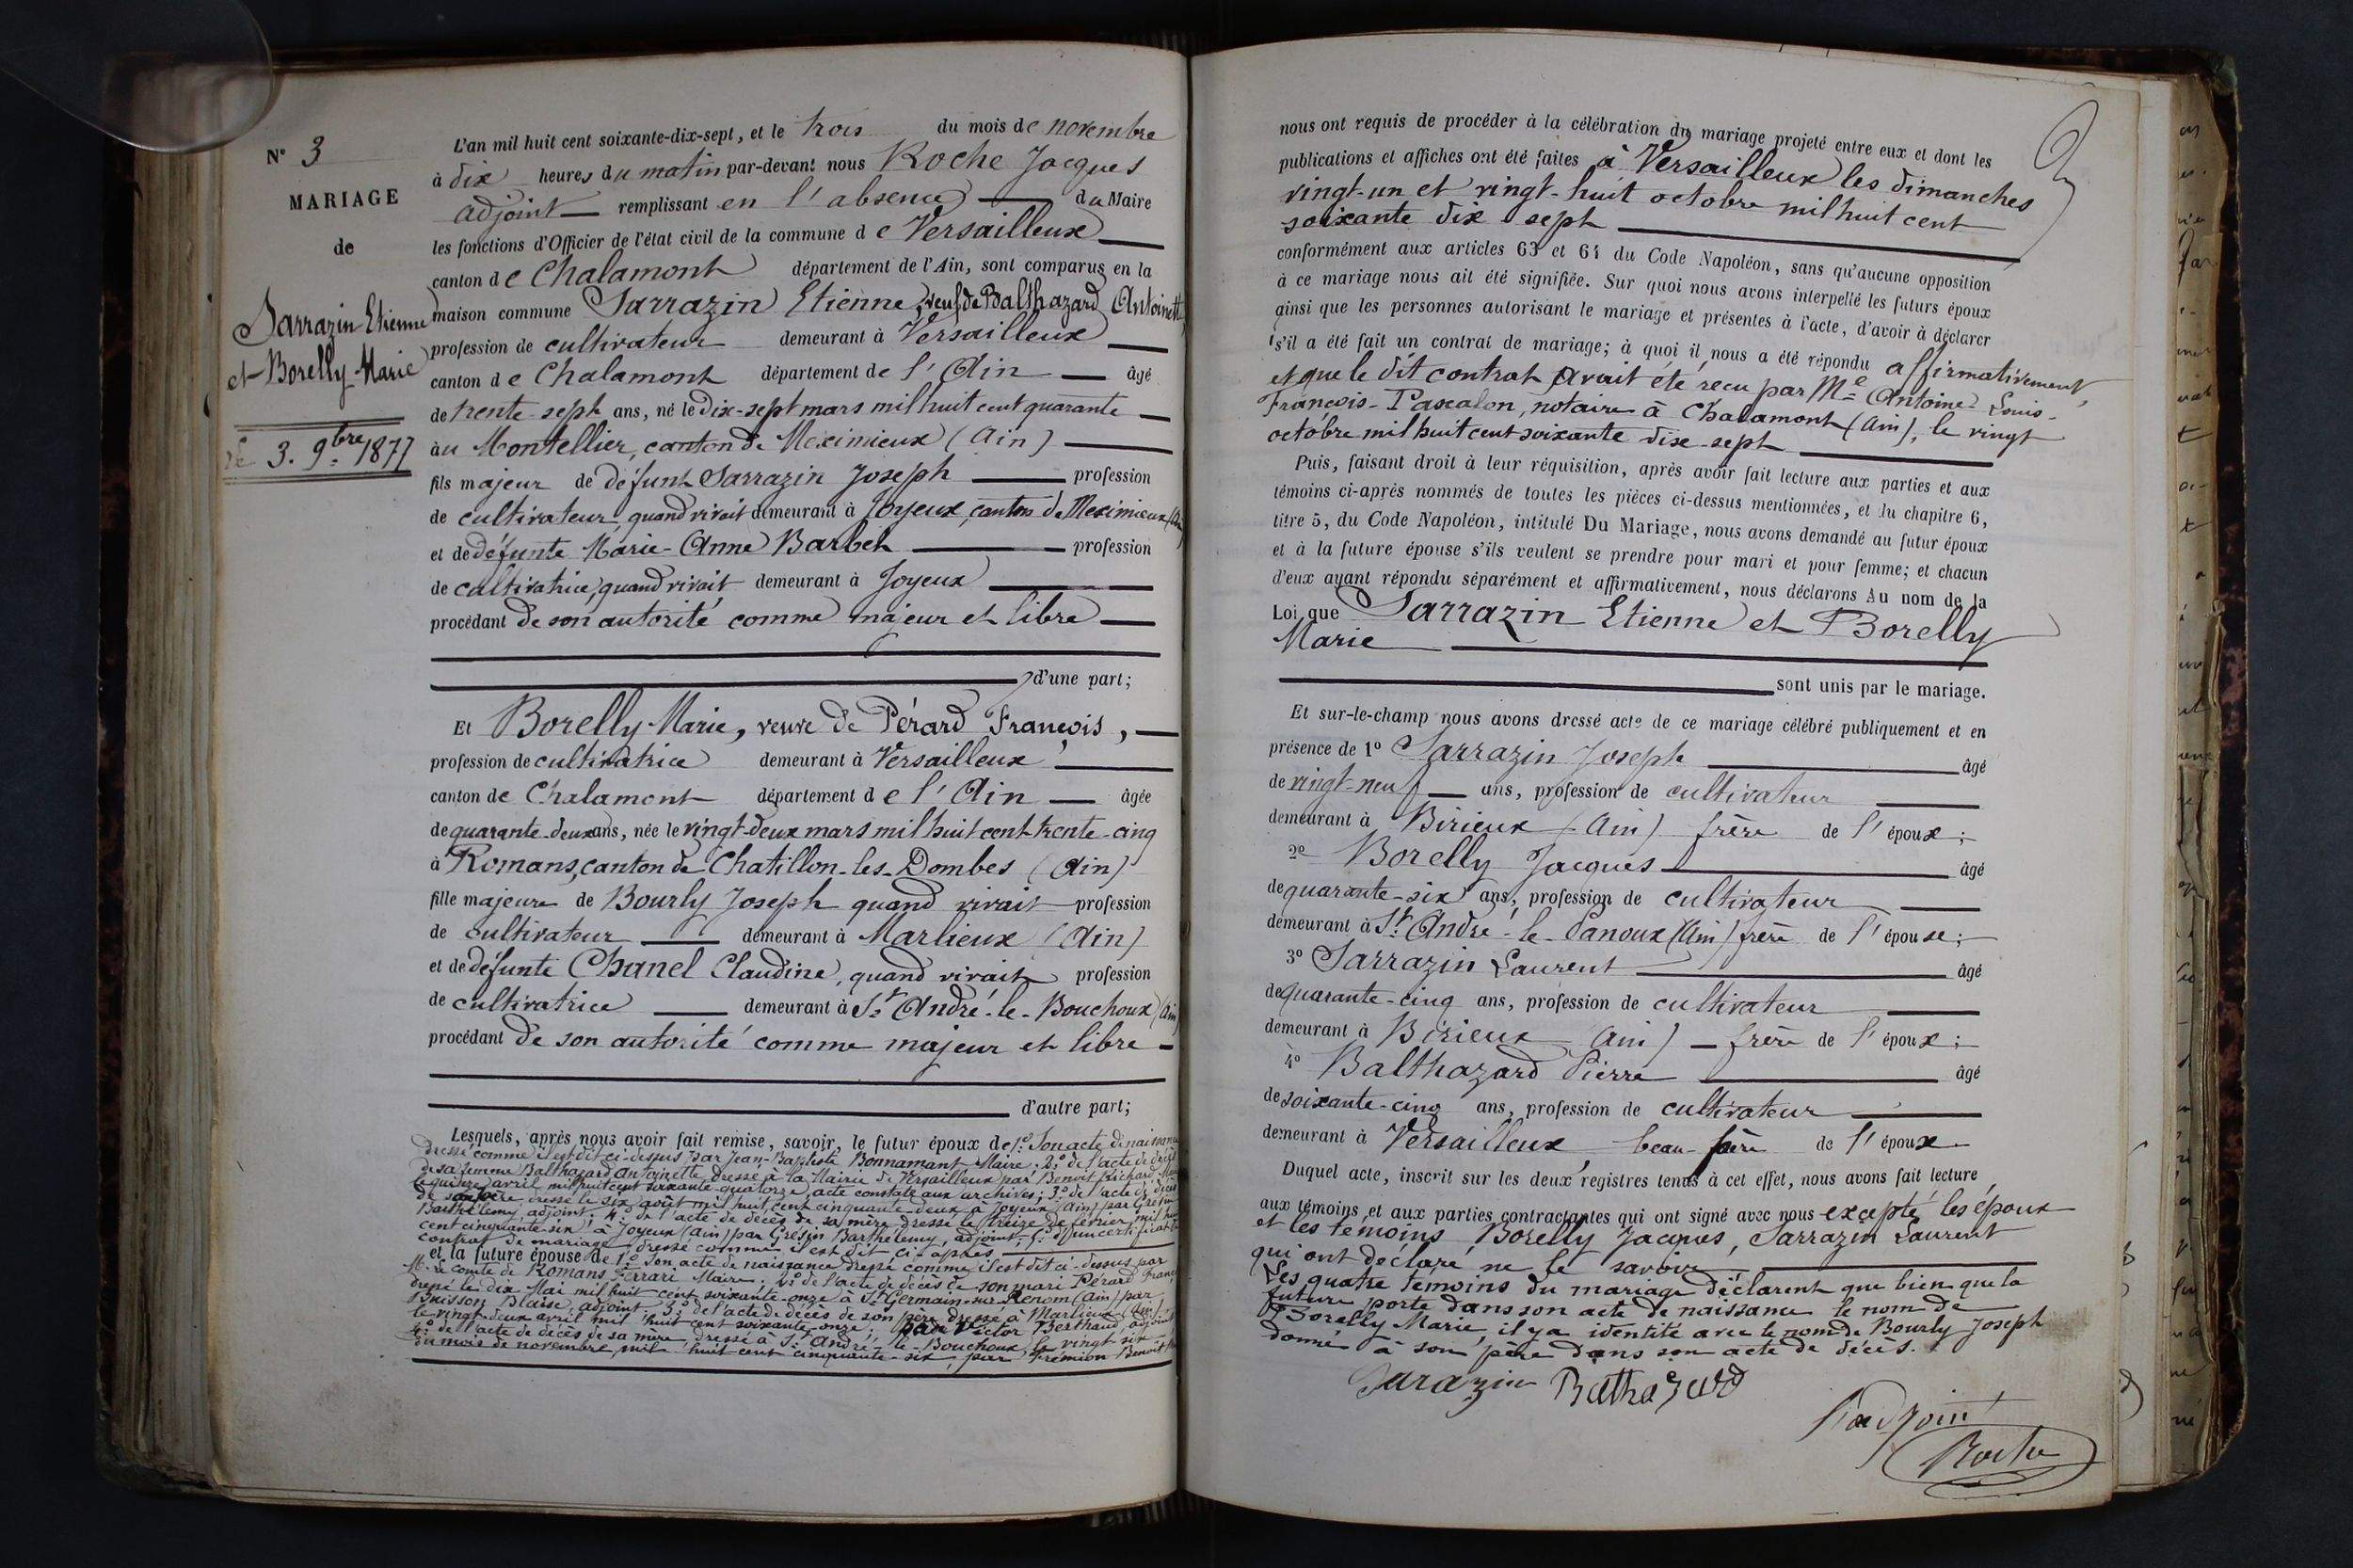 N° 3
MARIAGE
de
Sarrazin Etienne
et Borelly Marie
le 3. 9bre 1877
L'an mil huit cent soixante-dix-sept, et le trois du mois de novembre
à dix heures du matin par-devant nous Roche Jacques
adjoint remplissant en l'absence du Maire
les fonctions d'Officier de l'état civil de la commune de Versailleux
canton de Chalamont département de l'Ain, sont comparus en la
maison commune Sarrazin Etienne, veuf de Balthazard Antoinette,
profession de cultivateur demeurant à Versailleux
canton de Chalamont département de l'Ain âgé
de trente-sept ans, né le Dix-sept mars mil huit cent quarante
au Montellier, canton de Meximieux (Ain)
fils majeur de défunt Sarrazin Joseph profession
de cultivateur, quand vivait demeurant à Joyeux, canton de Meximieux (Ain)
et de défunte Marie-Anne Barbet profession
de cultivatrice, quand vivait demeurant à Joyeux
procédant de son autorité comme majeur et libre
d'une part;
Et Borelly Marie, veuve de Pérard François,
profession de cultivatrice demeurant à Versailleux
canton de Chalamont département de l'Ain âgée
de quarante-deux ans, née le vingt-deux mars mil huit cent trente-cinq
à Romans, canton de Chatillon-les-Dombes (Ain)
fille majeure de Bourly Joseph quand vivait profession
de cultivateur demeurant à Marlieux (Ain)
et de défunte Chanel Claudine, quand vivait profession
de cultivatrice demeurant à St André-le-Bouchoux (Ain)
procédant de son autorité comme majeur et libre
d'autre part;
Lesquels, après nous avoir fait remise, savoir, le futur époux de 1° Son acte de naissance
dressé comme il est dit ci-dessus par Jean-Baptiste Bonnamant Maire; 2° de l'acte de décès
de sa femme Balthazard Antoinette, dressé à la Mairie de Versailleux par Benoit Richard, Maire
le quinze avril mil huit cent soixante-quatorze, acte constaté aux archives; 3° de l'acte de décès
de son père dressé le six août mil huit cent cinquante-deux à Joyeux (Ain) par Grésin
Barthélemy adjoint; 4° de l'acte de décès de sa mère dressé le treize de février mil huit
cent cinquante-six à Joyeux (Ain) par Grésin Barthélemy, adjoint; 5° d'un certificat de
contrat de mariage dressé comme il est dit ci-après
et la future épouse de 1° Son acte de naissance dressé comme il est dit ci-dessus par
M. le comte de Romans Ferrari Maire; 2° de l'acte de décès de son mari Pérard François
dressé le dix Mai mil huit cent soixante-onze à St Germain-sur-Renom (Ain) par
Buisson Blaise, adjoint; 3° de l'acte de décès de son père dressé à Marlieux (Ain)
le vingt-deux avril mil huit cent soixante-onze, par Victor Berthaud adjoint
4° de l'acte de décès de sa mère dressé à St André-le-Bouchoux, le vingt-six
du mois de novembre, mil huit cent cinquante-six, par Frémion Benoit
nous ont requis de procéder à la célébration du mariage projeté entre eux et dont les
publications et affiches ont été faites à Versailleux les dimanches
vingt-un et vingt-huit octobre mil huit cent
soixante dix sept
conformément aux articles 63 et 64 du Code Napoléon, sans qu'aucune opposition
à ce mariage nous ait été signifiée. Sur quoi nous avons interpellé les futurs époux
ainsi que les personnes autorisant le mariage et présentes à l'acte, d'avoir à déclarer
s'il a été fait un contrat de mariage; à quoi il nous a été répondu affirmativement,
et que le dit contrat avait été reçu par Me Antoine-Louis-
François-Pascalon, notaire à Chalamont (Ain), le vingt
octobre mil huit cent soixante dix-sept
Puis, faisant droit à leur réquisition, après avoir fait lecture aux parties et aux
témoins ci-après nommés de toutes les pièces ci-dessus mentionnées, et du chapitre 6,
titre 5, du Code Napoléon, intitulé Du Mariage, nous avons demandé au futur époux
et à la future épouse s'ils veulent se prendre pour mari et pour femme; et chacun
d'eux ayant répondu séparément et affirmativement, nous déclarons Au nom de la
Loi, que Sarrazin Etienne et Borelly
Marie
sont unis par le mariage.
Et sur-le-champ nous avons dressé acte de ce mariage célébré publiquement et en
présence de 1° Sarrazin Joseph âgé
de vingt-neuf ans, profession de cultivateur
demeurant à Birieux (Ain) frère de l'époux;
2° Borelly Jacques âgé
de quarante-six ans, profession de cultivateur
demeurant à St André-le-Panoux (Ain) frère de l'épouse;
3° Sarrazin Laurent âgé
de quarante-cinq ans, profession de cultivateur
demeurant à Birieux (Ain) frère de l'époux;
4° Balthazard Pierre âgé
de soixante-cinq ans, profession de cultivateur
demeurant à Versailleux, beau-père de l'époux
Duquel acte, inscrit sur les deux registres tenus à cet effet, nous avons fait lecture
aux témoins et aux parties contractantes qui ont signé avec nous excepté les époux
et les témoins Borelly Jacques, Sarrazin Laurent
qui ont déclaré ne le savoir
Les quatre témoins du mariage déclarent que bien que la
future porte dans son acte de naissance le nom de
Borelly Marie, il y a identité avec le nom de Bourly Joseph
donné à son père dans son acte de décès.
Sarazin Balthazard
L'adjoint
Roche